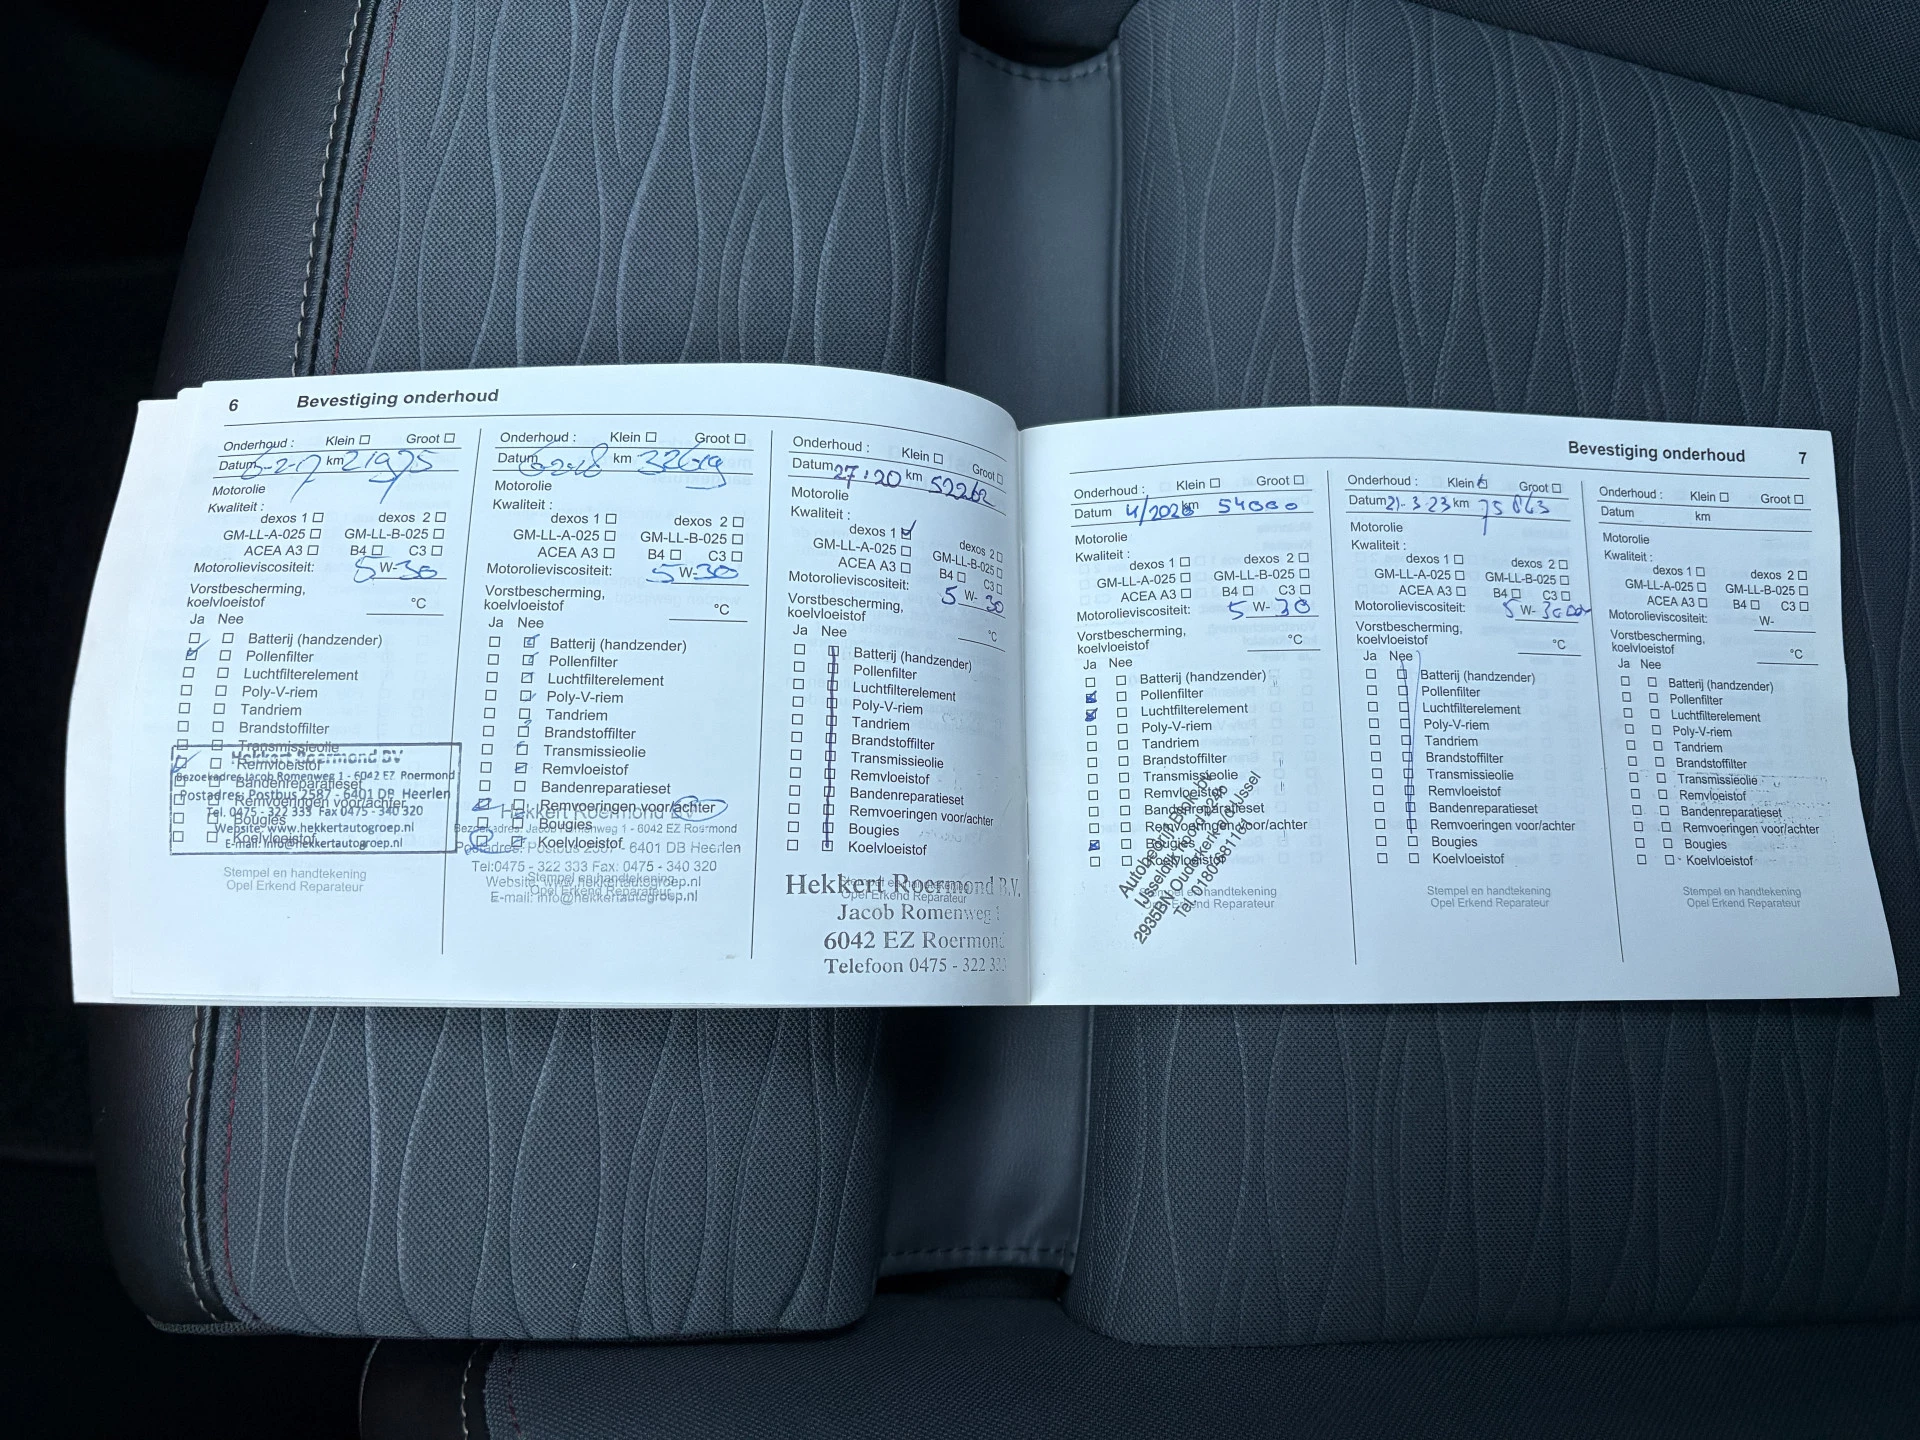 6 Bevestiging onderhoud
Onderhoud : Klein Groot
Datum 6-2-17 km 21975
Motorolie
Kwaliteit :
dexos 1 dexos 2
GM-LL-A-025 GM-LL-B-025
ACEA A3 B4 C3
Motorolieviscositeit: 5 W-30
Vorstbescherming,
koelvloeistof °C
Ja Nee
Batterij (handzender)
Pollenfilter
Luchtfilterelement
Poly-V-riem
Tandriem
Brandstoffilter
Transmissieolie
Remvloeistof
Bandenreparatieset
Remvoeringen voor/achter
Bougies
Koelvloeistof
Hekkert Roermond BV
Bezoekadres Jacob Romenweg 1 - 6042 EZ Roermond
Postadres: Postbus 2587 - 6401 DB Heerlen
Tel. 0475 - 322 333 Fax 0475 - 340 320
Website: www.hekkertautogroep.nl
E-mail: info@hekkertautogroep.nl
Stempel en handtekening
Opel Erkend Reparateur
Onderhoud : Klein Groot
Datum 6-2-18 km 32619
Motorolie
Kwaliteit :
dexos 1 dexos 2
GM-LL-A-025 GM-LL-B-025
ACEA A3 B4 C3
Motorolieviscositeit: 5 W-30
Vorstbescherming,
koelvloeistof °C
Ja Nee
Batterij (handzender)
Pollenfilter
Luchtfilterelement
Poly-V-riem
Tandriem
Brandstoffilter
Transmissieolie
Remvloeistof
Bandenreparatieset
Remvoeringen voor/achter
Bougies
Koelvloeistof
Hekkert Roermond BV
Bezoekadres: Jacob Romenweg 1 - 6042 EZ Roermond
Postadres: Postbus 2587 - 6401 DB Heerlen
Tel:0475 - 322 333 Fax: 0475 - 340 320
Website: www.hekkertautogroep.nl
E-mail: info@hekkertautogroep.nl
Stempel en handtekening
Opel Erkend Reparateur
Onderhoud : Klein Groot
Datum 27:20 km 52262
Motorolie
Kwaliteit :
dexos 1 dexos 2
GM-LL-A-025 GM-LL-B-025
ACEA A3 B4 C3
Motorolieviscositeit: 5 W- 30
Vorstbescherming,
koelvloeistof °C
Ja Nee
Batterij (handzender)
Pollenfilter
Luchtfilterelement
Poly-V-riem
Tandriem
Brandstoffilter
Transmissieolie
Remvloeistof
Bandenreparatieset
Remvoeringen voor/achter
Bougies
Koelvloeistof
Stempel en handtekening
Opel Erkend Reparateur
Hekkert Roermond B.V.
Jacob Romenweg 1
6042 EZ Roermond
Telefoon 0475 - 322 333
Bevestiging onderhoud 7
Onderhoud : Klein Groot
Datum 4/2020 km 54000
Motorolie
Kwaliteit :
dexos 1 dexos 2
GM-LL-A-025 GM-LL-B-025
ACEA A3 B4 C3
Motorolieviscositeit: 5 W- 30
Vorstbescherming,
koelvloeistof °C
Ja Nee
Batterij (handzender)
Pollenfilter
Luchtfilterelement
Poly-V-riem
Tandriem
Brandstoffilter
Transmissieolie
Remvloeistof
Bandenreparatieset
Remvoeringen voor/achter
Bougies
Koelvloeistof
Stempel en handtekening
Opel Erkend Reparateur
Autobedrijf
IJsseldijk Noord
2935BN Ouderkerk a/d IJssel
Tel
Onderhoud : Klein Groot
Datum 21-3-23 km 75 863
Motorolie
Kwaliteit :
dexos 1 dexos 2
GM-LL-A-025 GM-LL-B-025
ACEA A3 B4 C3
Motorolieviscositeit: 5 W-
Vorstbescherming,
koelvloeistof °C
Ja Nee
Batterij (handzender)
Pollenfilter
Luchtfilterelement
Poly-V-riem
Tandriem
Brandstoffilter
Transmissieolie
Remvloeistof
Bandenreparatieset
Remvoeringen voor/achter
Bougies
Koelvloeistof
Stempel en handtekening
Opel Erkend Reparateur
Onderhoud : Klein Groot
Datum km
Motorolie
Kwaliteit :
dexos 1 dexos 2
GM-LL-A-025 GM-LL-B-025
ACEA A3 B4 C3
Motorolieviscositeit: W-
Vorstbescherming,
koelvloeistof °C
Ja Nee
Batterij (handzender)
Pollenfilter
Luchtfilterelement
Poly-V-riem
Tandriem
Brandstoffilter
Transmissieolie
Remvloeistof
Bandenreparatieset
Remvoeringen voor/achter
Bougies
Koelvloeistof
Stempel en handtekening
Opel Erkend Reparateur